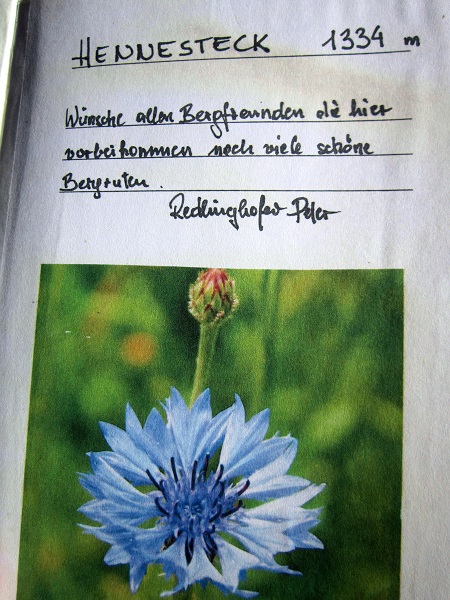 HENNESTECK 1334 m
Wünsche allen Bergfreunden die hier
vorbeikommen noch viele schöne
Bergtuten.
Redlinghofer Peter